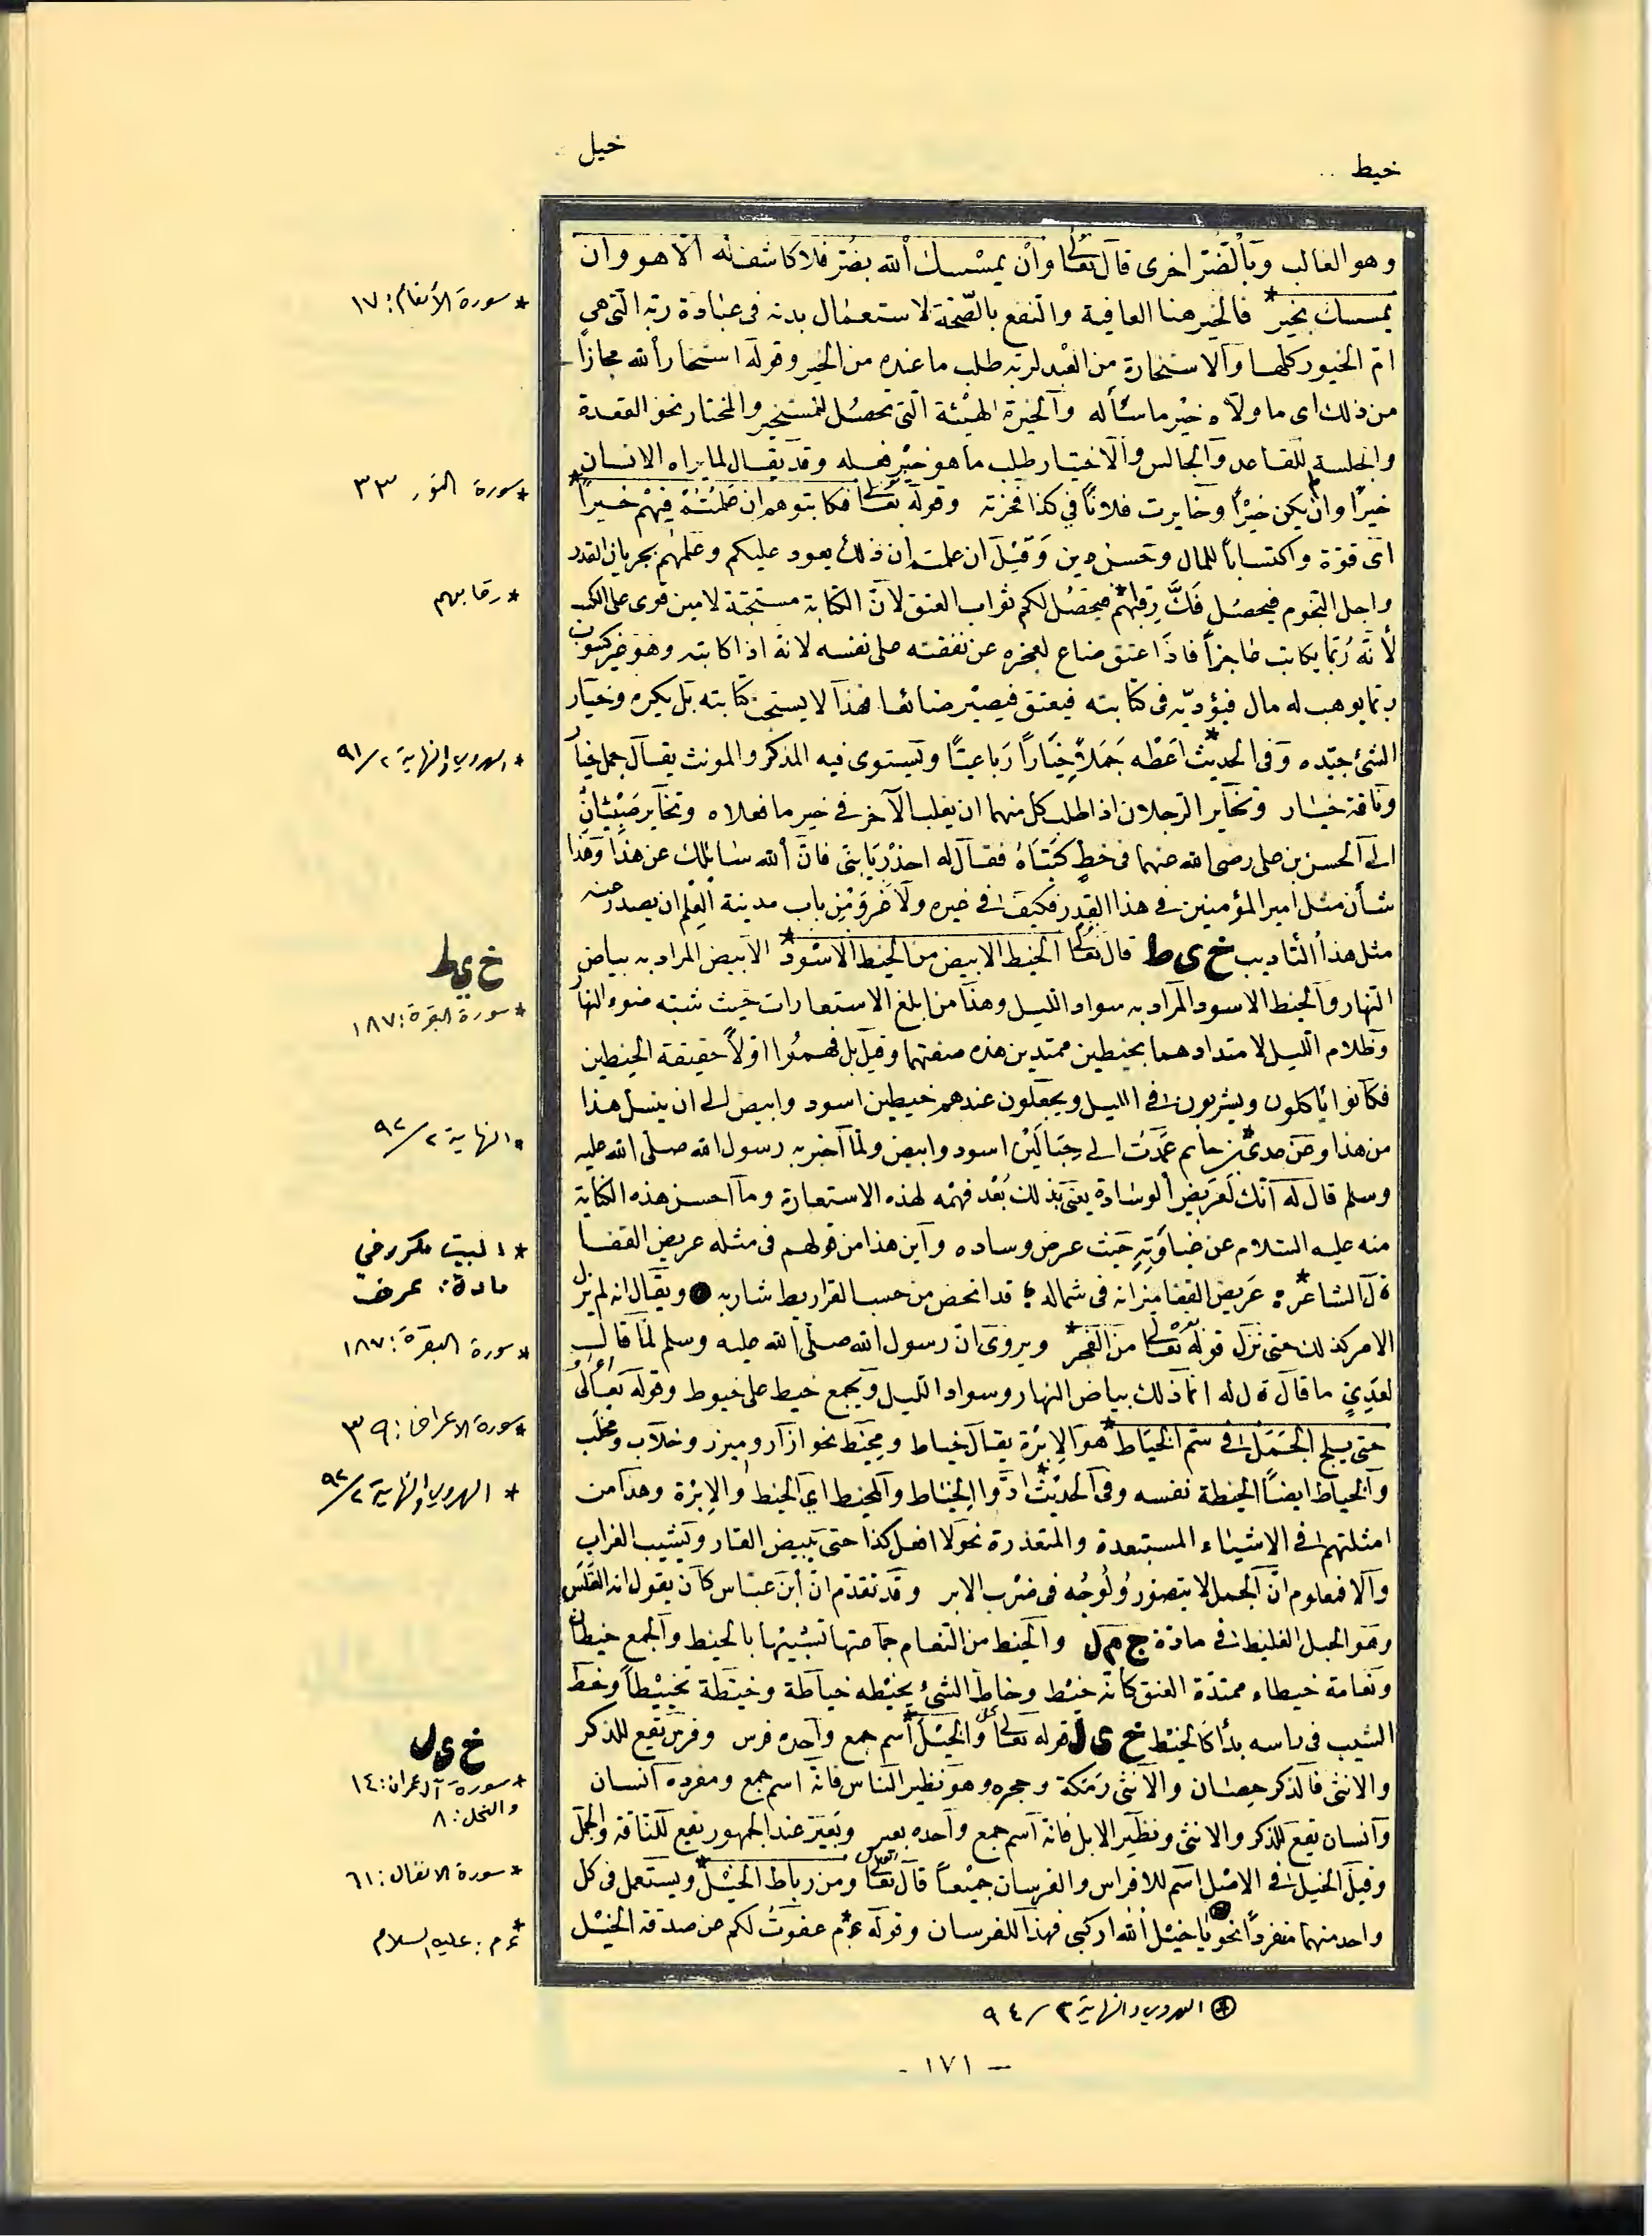 خيط
خيل
وهو الغالب وبالضر اخرى قال تعالى وان يمسسك الله بضر فلا كاشف له الا هو وان
يمسسك بخير* فالخير هنا العافية والنفع بالصحة لاستعمال بدنه فى عبادة ربه التى هى
ام الخيور كلها والاستخارة من العبد لربه طلب ما عنده من الخير وقوله استخار الله مجازاً
من ذلك اى ما ولاه خير ما سأله والخيرة الهيئة التى تحصل للمستخير والمختار نحو القعدة
والجلسة للقاعد والجالس والاختيار طلب ما هو خير فعله وقد يقال لما يراه الانسان
خيراً وان لم يكن خيراً وخايرت فلاناً فى كذا فخرته وقوله تعالى فكاتبوهم ان علمتم فيهم خيراً*
اى قوة واكتساباً للمال وحسن دين وقيل ان علمتم ان ذلك يعود عليكم وعليهم بجريان القدر
واجل النجوم فيحصل فك رقبانهم* فيحصل لكم ثواب العتق لان الكتابة مستحبة لامين قوى على الكسب
لانه ربما يكاتب عاجزاً فاذا عتق ضاع لعجزه عن نفقته على نفسه لانه اذا كاتبه وهو غير كسوب
ربما يوهب له مال فيؤديه فى كتابته فيعتق فيصير ضائعا فهذا لا يستحب كتابته بل يكره وخيار
الشئ جيده وفى الحديث* اعطه جملاً خياراً رباعياً ويستوى فيه المذكر والمونث يقال جمل خيار
وناقة خيار وتخاير الرجلان اذا طلب كل منهما ان يغلب الآخر فى خير ما فعلاه وتخاير صبيان
الى الحسن بن على رضى الله عنهما فى خط كتباه فقال له احذر يا بنى فان الله سايلك عن هذا وهذا
شأن مثل امير المؤمنين فى هذا القدر فكيف فى غيره ولا غرو من باب مدينة العلم ان يصدر عنه
مثل هذا التأديب خ ى ط قال تعالى الخيط الابيض من الخيط الاسود* الابيض المراد به بياض
النهار والخيط الاسود المراد به سواد الليل وهذا من ابلغ الاستعارات حيث شبه ضوء النهار
وظلام الليل لامتدادهما بخيطين ممتدين هذه صفتهما وقيل بل فهموا اولاً حقيقة الخيطين
فكانوا ياكلون ويشربون فى الليل ويجعلون عندهم خيطين اسود وابيض الى ان ينسل هذا
من هذا وعن عدى* بن حاتم عمدت الى حبالين اسود وابيض ولما اخبر به رسول الله صلى الله عليه
وسلم قال له انك لعريض الوسادة يعنى بذلك بعد فهمه لهذه الاستعارة وما احسن هذه الكناية
منه عليه السلام عن غباوته حيث عرض وساده واين هذا من قولهم فى مثله عريض القفا
قال الشاعر* عريض القفا ميزانه فى شماله قد انحص من حسب القراريط شاربه ويقال انه لم يزل
الامر كذلك حتى نزل قوله تعالى من الفجر* ويروى ان رسول الله صلى الله عليه وسلم لما قال
لعدى ما قال قال له انما ذلك بياض النهار وسواد الليل ويجمع خيط على خيوط وقوله تعالى
حتى يلج الجمل فى سم الخياط* هو الابرة يقال خياط ومخيط نحو ازار وميزر وحلاب ومحلب
والخياط ايضاً الخيطة نفسه وفى الحديث* ادوا الخياط والمخيط اى الخيط والابرة وهذا من
امثلتهم فى الاشياء المستبعدة والمتعذرة نحو لا افعل كذا حتى يبيض القار ويشيب الغراب
والا فمعلوم ان الجمل لا يتصور ولوجه فى خرب الابر وقد تقدم ان ابن عباس كان يقول انه القلس
وهو الحبل الغليظ فى مادة ج م ل والخيط من النعام جماعتها تشبيها بالخيط والجمع خيطان
ونعامة خيطاء ممتدة العنق كانه خيط وخاط الشئ يخيطه خياطة وخيطة تخييطاً وخيط
الشيب فى راسه بدأ كالخيط خ ى ل قوله تعالى والخيل* اسم جمع واحده فرس وفرس يقع للذكر
والانثى فالذكر حصان والانثى رمكة وحجره وهو نظير الناس فانه اسم جمع ومفرده انسان
وانسان يقع للذكر والانثى ونظير الابل فانه اسم جمع واحده بعير وبعير عند الجمهور يقع للناقة والجمل
وقيل الخيل فى الاصل اسم للافراس والفرسان جميعاً قال تعالى ومن رباط الخيل* ويستعمل فى كل
واحد منهما منفرداً نحو يا خيل الله اركبى فهذا للفرسان وقوله ع*م عفوت لكم عن صدقة الخيل
* سورة الأنعام: ١٧
* سورة النور ٣٣
* رقابهم
* الهروي والنهاية ٢/٩١
خ ي ط
* سورة البقرة: ١٨٧
* النهاية ٢/٩٢
* البيت مكرر في
مادة: عرض
* سورة البقرة: ١٨٧
* سورة الاعراف: ٣٩
* الهروي والنهاية ٢/٩٢
خ ي ل
* سورة آل عمران: ١٤
والنحل: ٨
* سورة الانفال: ٦١
* ع م: عليه السلام
(*) الهروي والنهاية ٣/٩٤
- ١٧١ -